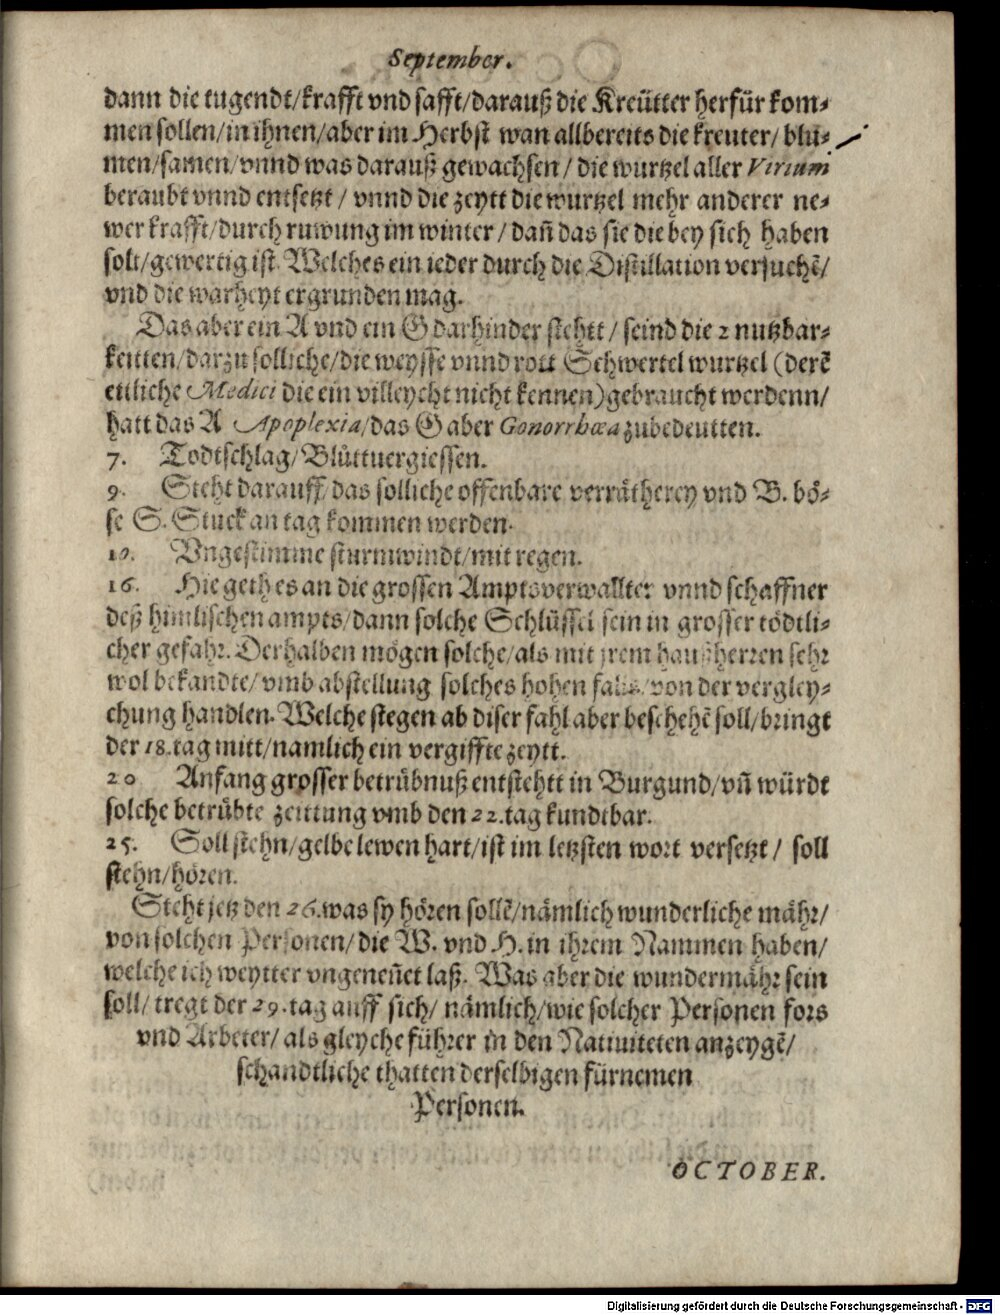 September.
dann die tugendt/krafft vnd safft/darauß die Kreütter herfür kom⸗
men sollen/in ihnen/aber im Herbst wan allbereits die kreuter/ blů⸗
men/samen/vnnd was darauß gewachsen / die wurtzel aller Virium
beraubt vnnd entsetzt / vnnd die zeytt die wurtzel mehr anderer ne⸗
wer krafft/durch ruwung im winter / dañ das sie die bey sich haben
solt/gewertig ist. Welches ein ieder durch die Distillation versuchẽ/
vnd die warheyt ergrunden mag.
Das aber ein A vnd ein G darhinder stehtt / seind die 2 nutzbar⸗
keitten/darzu solliche/die weysse vnnd rott Schwertel wurtzel (derẽ
ettliche Medici die ein villeycht nicht kennen)gebraucht werdenn/
hatt das A Apoplexia/das G aber Gonorrhœa zubedeutten.
7. Todtschlag/Blůttuergiessen.
9. Steht darauff/das solliche offenbare verrätherey vnd B. bö⸗
se S. Stuck an tag kommen werden.
10. Vngestimme sturmwindt/mit regen.
16. Hie geth es an die grossen Amptsverwallter vnnd schaffner
deß himlischen ampts/dann solche Schlüssel sein in grosser tödtli⸗
cher gefahr. Derhalben mögen solche/als mit jrem haußherren sehr
wol bekandte/vmb abstellung solches hohen falls/von der vergley⸗
chung handlen. Welche stegen ab diser fahl aber beschehẽ soll/bringt
der 18.tag mitt/namlich ein vergiffte zeytt.
20 Anfang grosser betrübnuß entstehtt in Burgund/vñ würdt
solche betrübte zeittung vmb den 22.tag kundtbar.
25. Soll stehn/gelbe lewen hart/ist im letzsten wort versetzt / soll
stehn/hören.
Steht jetz den 26.was sy hören sollẽ/nämlich wunderliche mähr/
von solchen Personen/die W. vnd H. in ihrem Nammen haben/
welche ich weytter vngeneñet laß. Was aber die wundermähr sein
soll/ tregt der 29.tag auff sich/ nämlich/wie solcher Personen fors
vnd Arbeter/ als gleyche führer in den Natiuiteten anzeygẽ/
schandtliche thatten derselbigen fürnemen
Personen.
OCTOBER.
Digitalisierung gefördert durch die Deutsche Forschungsgemeinschaft - DFG